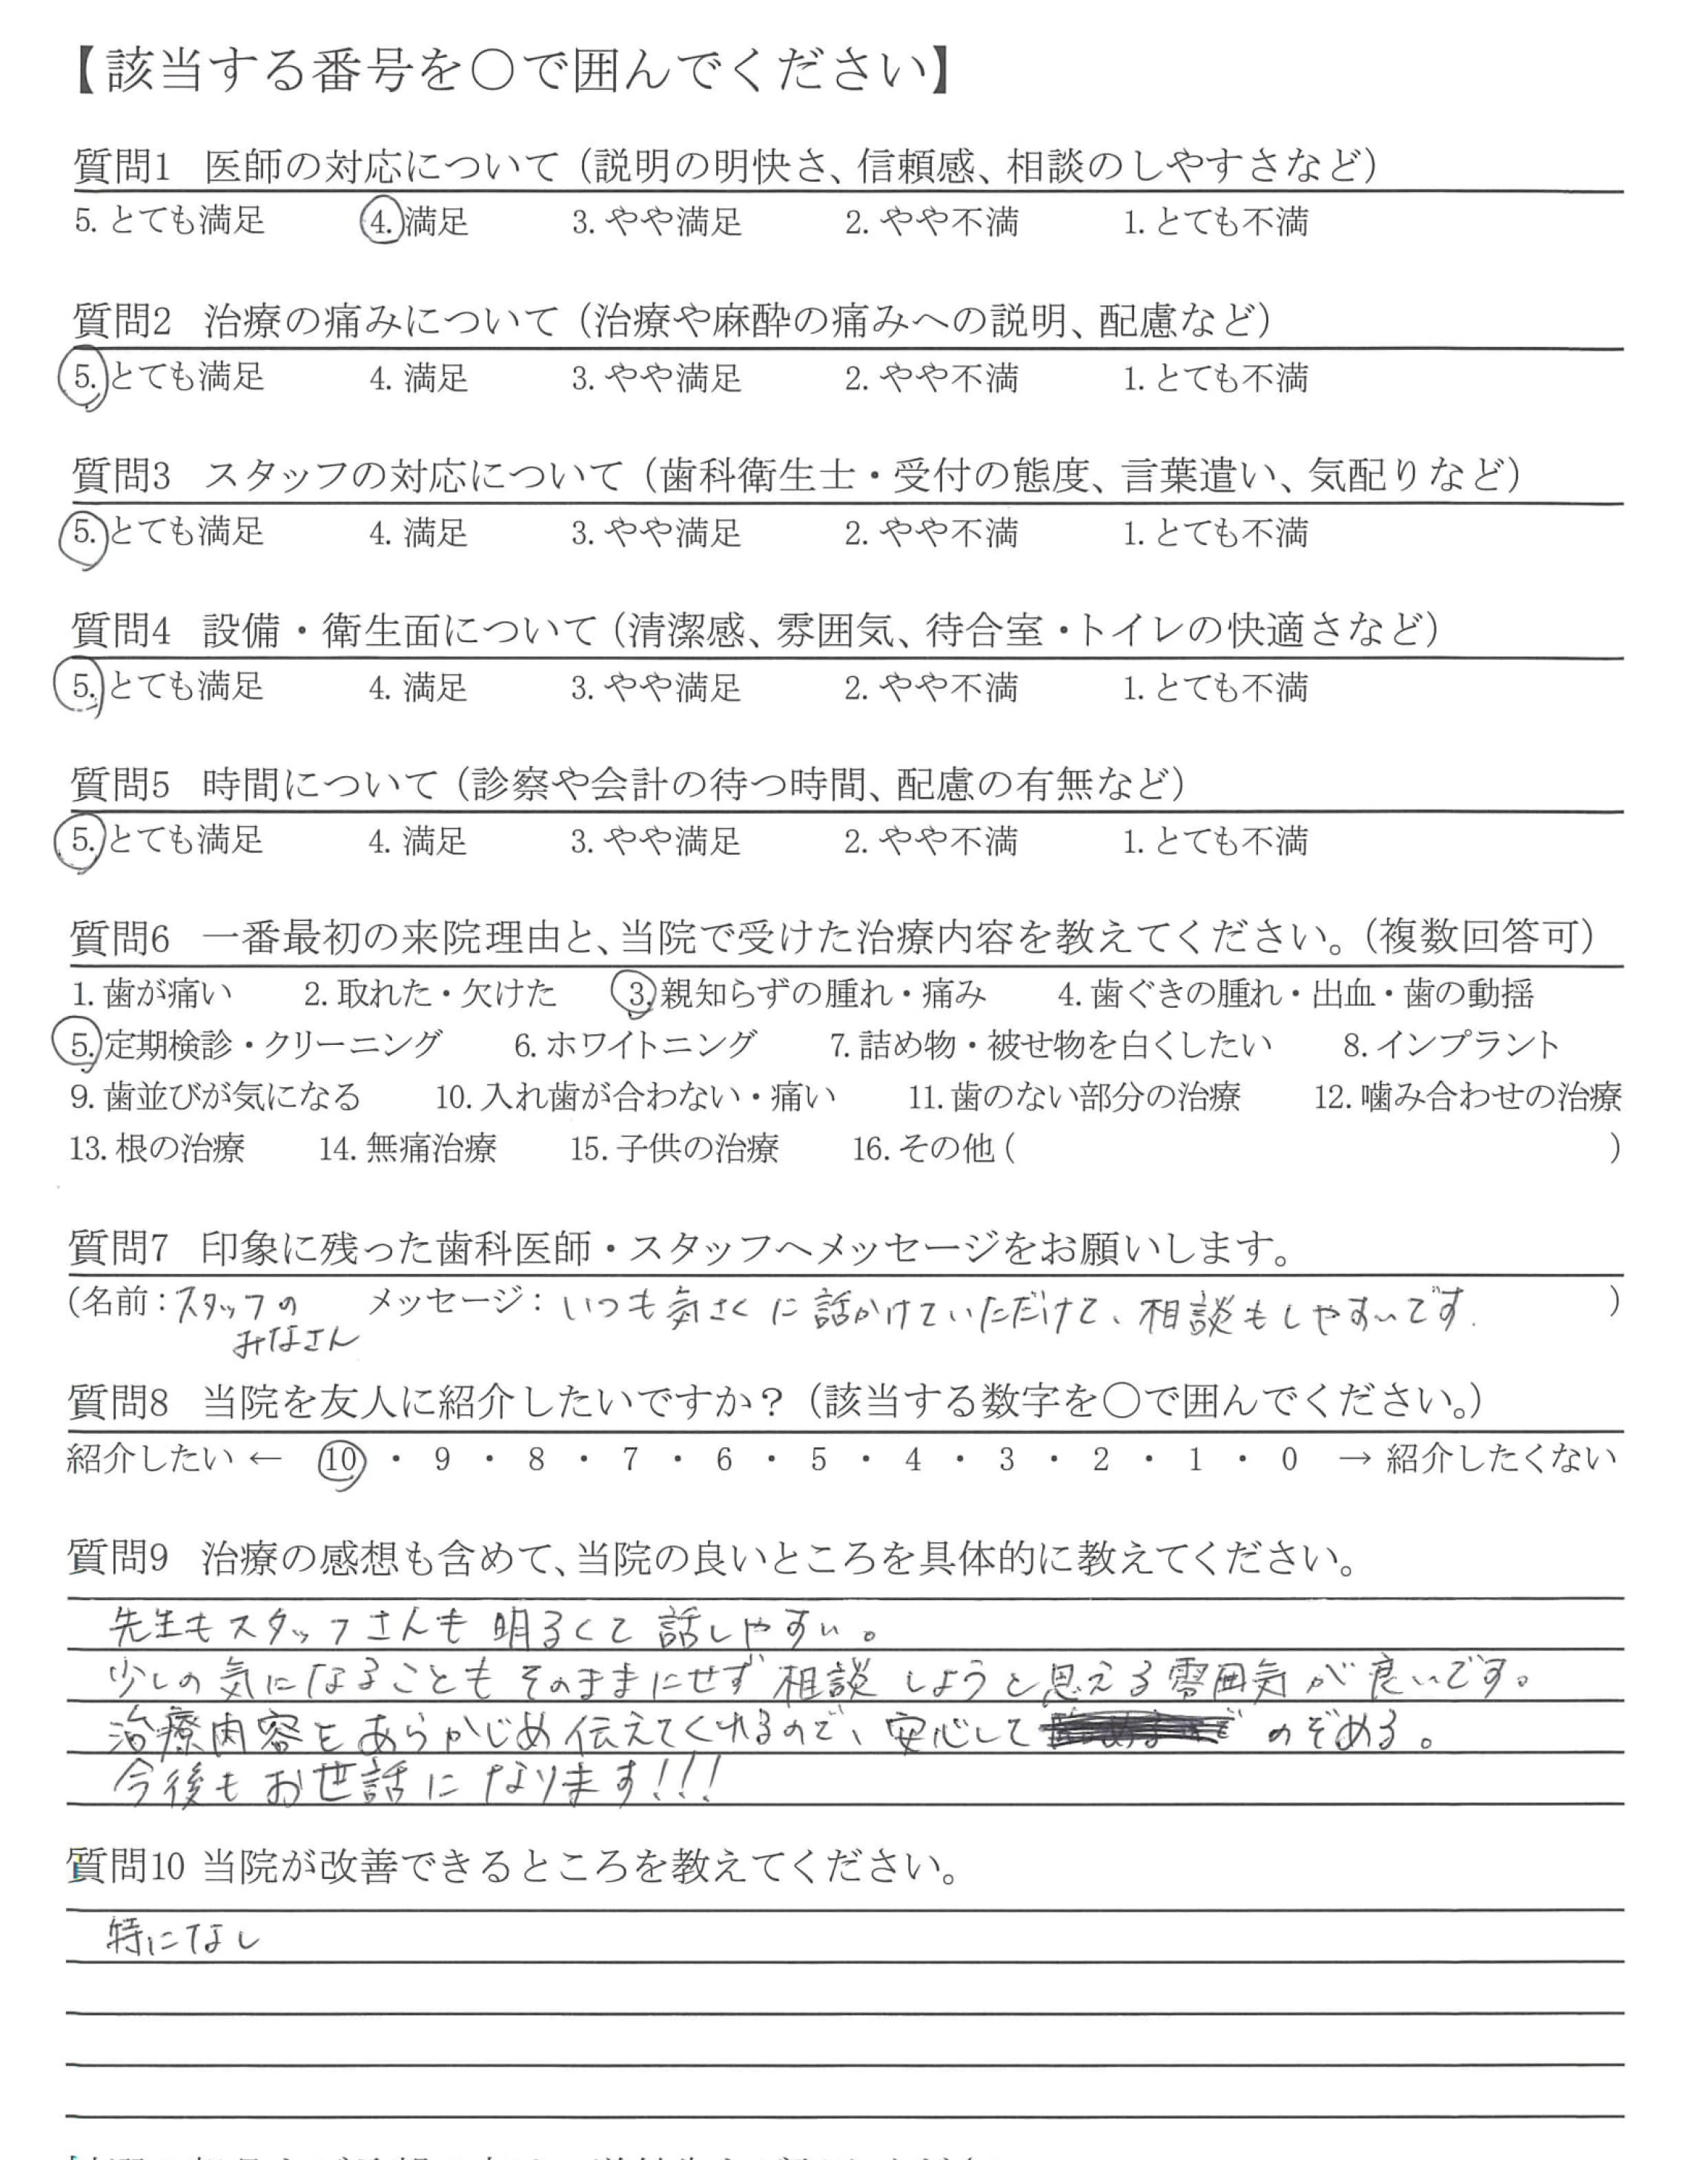 【該当する番号を〇で囲んでください】
質問1 医師の対応について（説明の明快さ、信頼感、相談のしやすさなど）
5. とても満足 4. 満足 3. やや満足 2. やや不満 1. とても不満
質問2 治療の痛みについて（治療や麻酔の痛みへの説明、配慮など）
5. とても満足 4. 満足 3. やや満足 2. やや不満 1. とても不満
質問3 スタッフの対応について（歯科衛生士・受付の態度、言葉遣い、気配りなど）
5. とても満足 4. 満足 3. やや満足 2. やや不満 1. とても不満
質問4 設備・衛生面について（清潔感、雰囲気、待合室・トイレの快適さなど）
5. とても満足 4. 満足 3. やや満足 2. やや不満 1. とても不満
質問5 時間について（診察や会計の待つ時間、配慮の有無など）
5. とても満足 4. 満足 3. やや満足 2. やや不満 1. とても不満
質問6 一番最初の来院理由と、当院で受けた治療内容を教えてください。（複数回答可）
1. 歯が痛い 2. 取れた・欠けた 3. 親知らずの腫れ・痛み 4. 歯ぐきの腫れ・出血・歯の動揺
5. 定期検診・クリーニング 6. ホワイトニング 7. 詰め物・被せ物を白くしたい 8. インプラント
9. 歯並びが気になる 10. 入れ歯が合わない・痛い 11. 歯のない部分の治療 12. 噛み合わせの治療
13. 根の治療 14. 無痛治療 15. 子供の治療 16. その他（ ）
質問7 印象に残った歯科医師・スタッフへメッセージをお願いします。
（名前：スタッフの メッセージ：いつも気さくに話かけていただけて、相談もしやすいです. ）
みなさん
質問8 当院を友人に紹介したいですか？（該当する数字を〇で囲んでください。）
紹介したい ← 10 ・ 9 ・ 8 ・ 7 ・ 6 ・ 5 ・ 4 ・ 3 ・ 2 ・ 1 ・ 0 → 紹介したくない
質問9 治療の感想も含めて、当院の良いところを具体的に教えてください。
先生もスタッフさんも明るくて話しやすい。
少しの気になることもそのままにせず相談しようと思える雰囲気が良いです。
治療内容をあらかじめ伝えてくれるので、安心して のぞめる。
今後もお世話になります!!!
質問10 当院が改善できるところを教えてください。
特になし